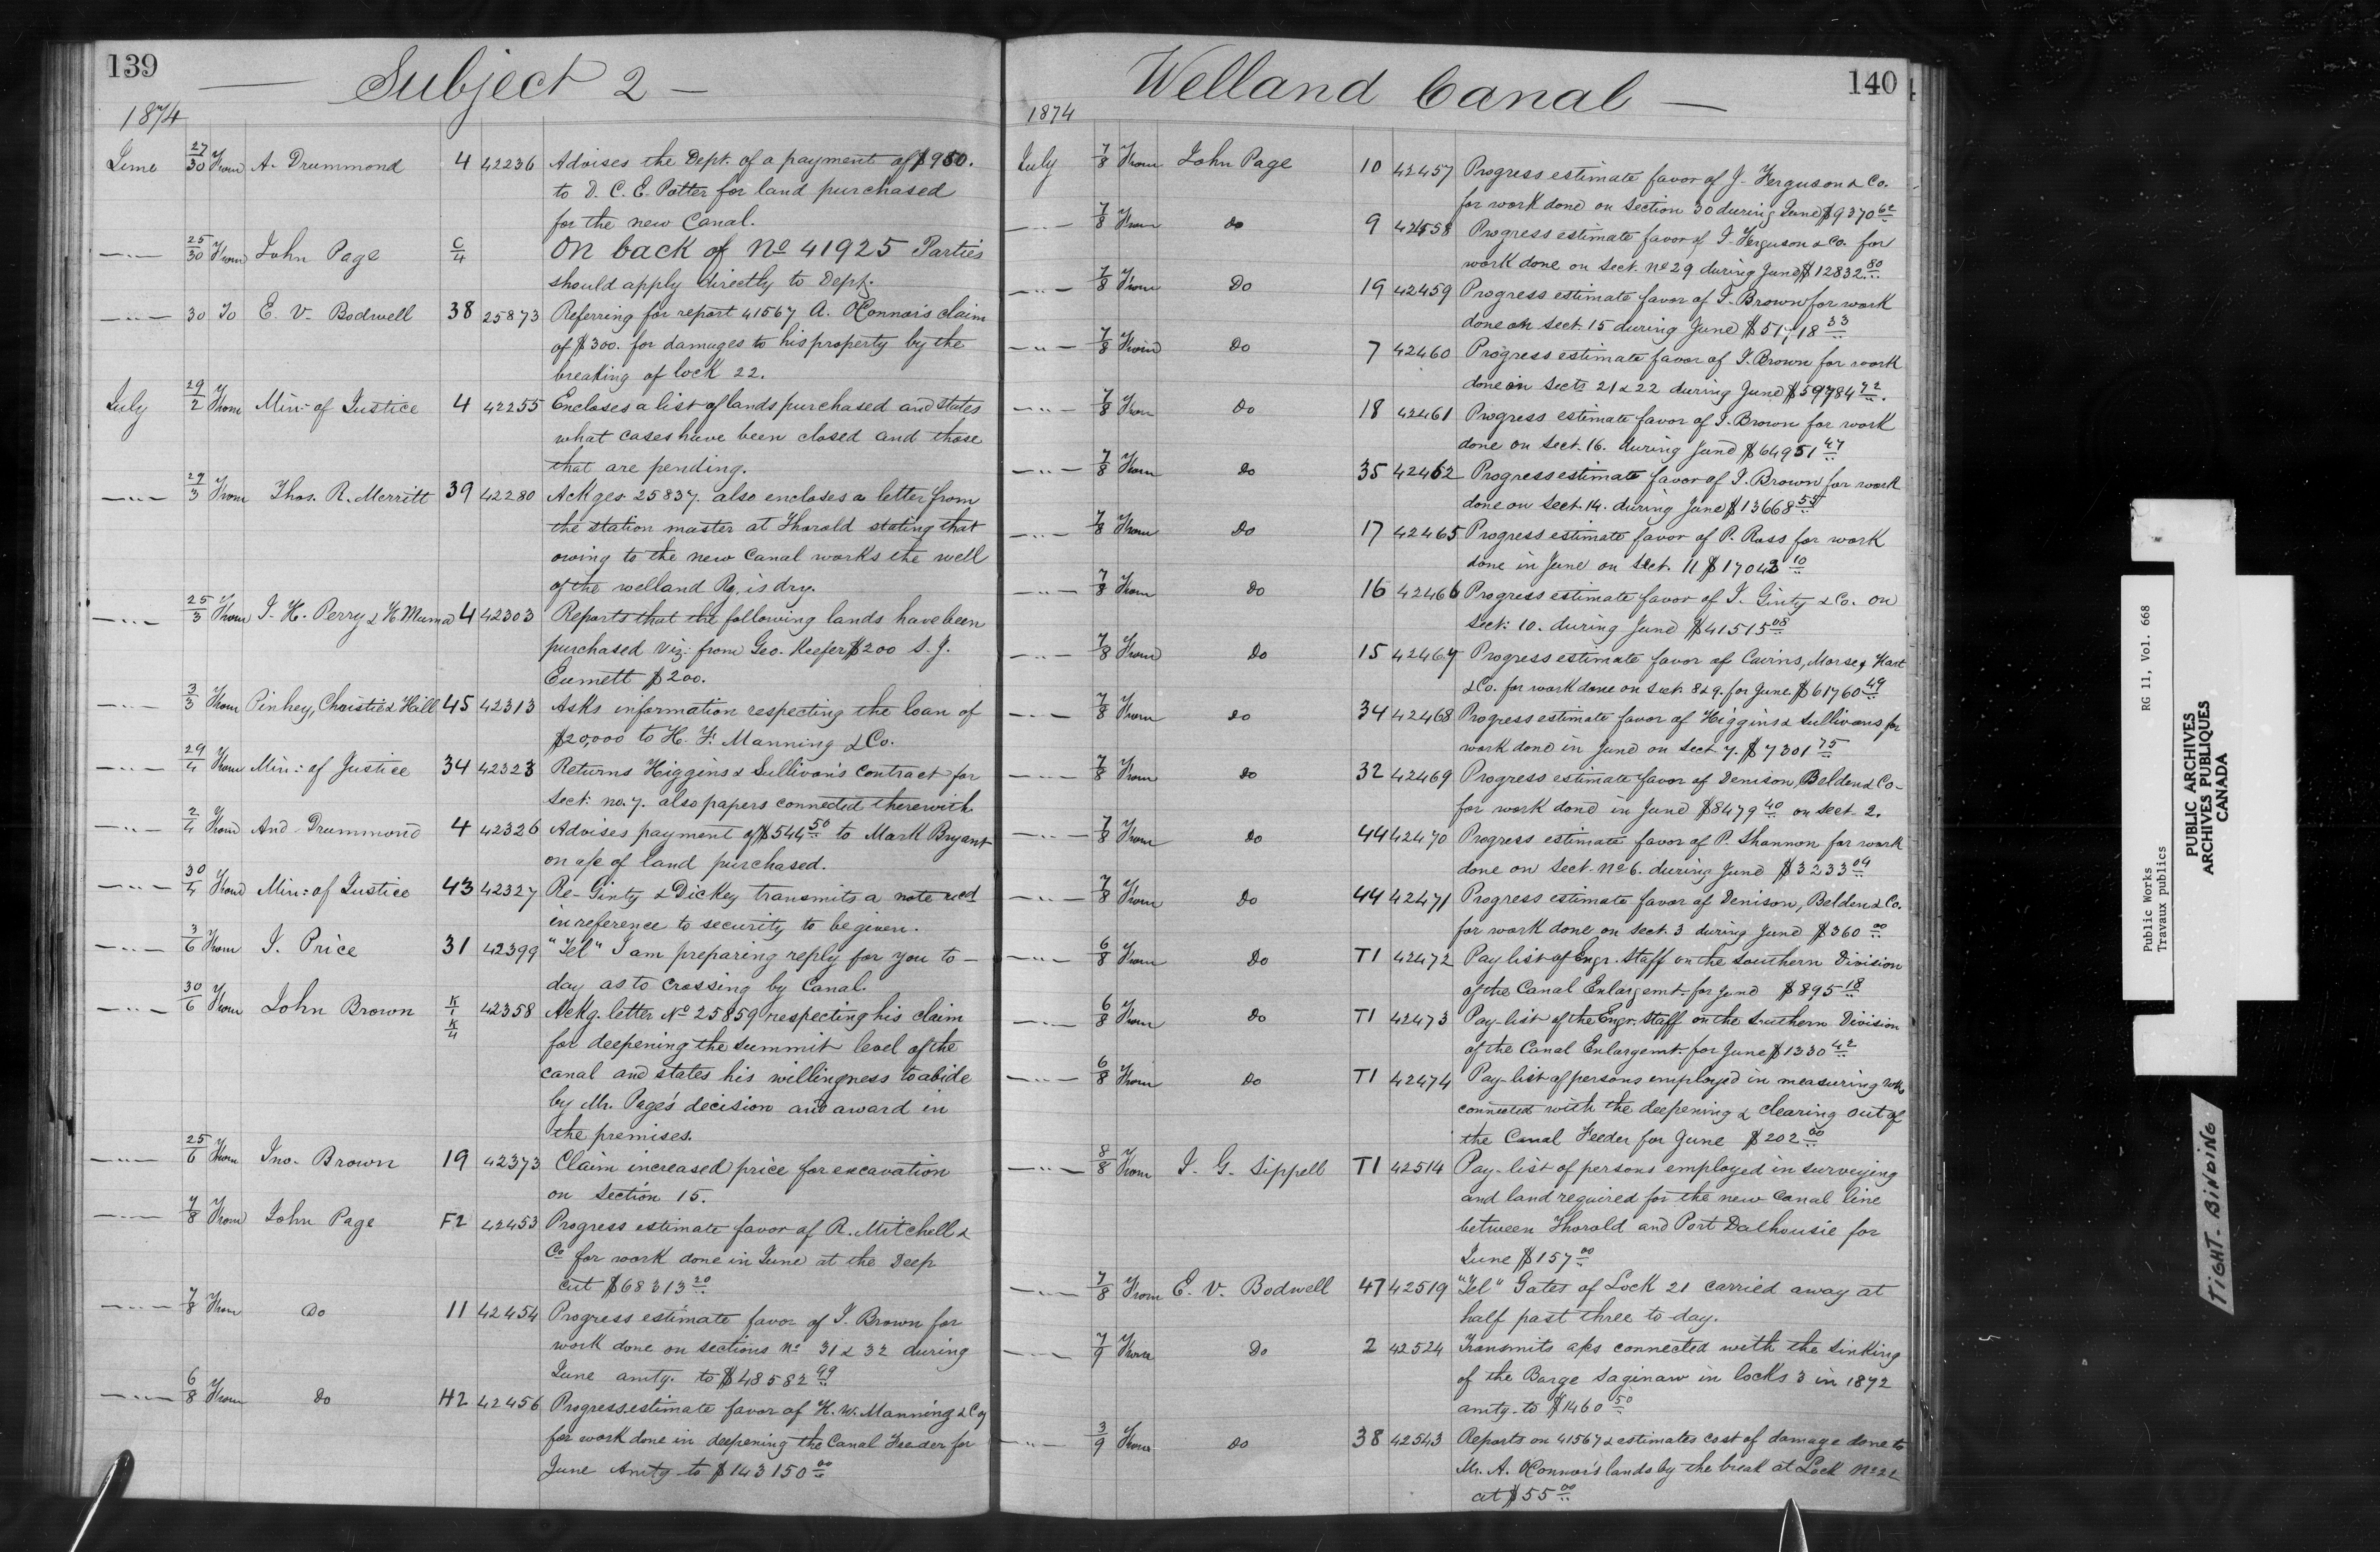 139
Subject 2 —
1874
June 27/30 From A. Drummond 4 42236 Advises the Dept. of a payment of $950.
to D. C. E. Potter for land purchased
for the new Canal.
—〃— 25/30 From John Page C/4 On back of No 41925 Parties
should apply directly to Dept.
—〃— 30 To E. V. Bodwell 38 25873 Referring for report 41567 A. OConnor's claim
of $300. for damages to his property by the
breaking of lock 22.
July 29/2 From Min: of Justice 4 42255 Encloses a list of lands purchased and states
what cases have been closed and those
that are pending.
—〃— 27/3 From Thos. R. Merritt 39 42280 Ackges. 25837. also encloses a letter from
the station master at Thorold stating that
owing to the new Canal works the well
of the welland Ry. is dry.
—〃— 25/3 From J. H. Perry & H Muma 4 42303 Reports that the following lands have been
purchased viz: from Geo. Keefer $200 S. J.
Eumett $200.
—〃— 3/3 From Pinhey, Christie & Hill 45 42313 Asks information respecting the loan of
$20,000 to H. F. Manning & Co.
—〃— 29/4 From Min: of Justice 34 42323 Returns Higgins & Sullivan's contract for
Sect: no. 7. also papers connected therewith
—〃— 2/4 From And Drummond 4 42326 Advises payment of $544 50 to Mark Bryant
on a/c of land purchased.
—〃— 30/4 From Min: of Justice 43 42327 Re- Ginty & Dickey transmits a note recd
in reference to security to be given.
—〃— 3/6 From J. Price 31 42399 "Tel" I am preparing reply for you to-
day as to crossing by Canal.
—〃— 30/6 From John Brown K/1 K/4 42358 Ackg. letter No 25859 respecting his claim
for deepening the summit level of the
canal and states his willingness to abide
by Mr. Page's decision and award in
the premises.
—〃— 25/6 From Jno. Brown 19 42373 Claim increased price for excavation
on Section 15.
—〃— 7/8 From John Page F2 42453 Progress estimate favor of R. Mitchell &
Co for work done in June at the Deep
cut $68313 20
—〃— 7/8 From Do 11 42454 Progress estimate favor of J. Brown for
work done on sections No 31 & 32 during
June amtg. to $48582 99
—〃— 6/8 From Do H2 42456 Progress estimate favor of H. W. Manning & Coy
for work done in deepening the Canal Feeder for
June Amtg to $143150 00
Welland Canal —
140
1874
July 7/8 From John Page 10 42457 Progress estimate favor of J. Ferguson & Co.
for work done on Section 30 during June $9370 62
—〃— 7/8 From do 9 42458 Progress estimate favor of J. Ferguson & Co. for
work done on Sect. No 29 during June $12832 80
—〃— 7/8 From Do 19 42459 Progress estimate favor of J. Brown for work
done on Sect. 15 during June $51,718 33
—〃— 7/8 From Do 7 42460 Progress estimate favor of J. Brown for work
done on Sects 21 & 22 during June $59784 72.
—〃— 7/8 From Do 18 42461 Progress estimate favor of J. Brown for work
done on Sect. 16. during June $64951 47
—〃— 7/8 From do 35 42462 Progress estimate favor of J. Brown for work
done on Sect. 14. during June $13668 55
—〃— 7/8 From Do 17 42465 Progress estimate favor of P. Ross for work
done in June on Sect. 11 $17043 10
—〃— 7/8 From Do 16 42466 Progress estimate favor of J. Ginty & Co. on
Sect: 10. during June $41515 08
—〃— 7/8 From Do 15 42467 Progress estimate favor of Cairns, Morse, Hart
& Co. for work done on Sect. 8 & 9. for June $61760 49
—〃— 7/8 From do 34 42468 Progress estimate favor of Higgins & Sullivans for
work done in June on Sect 7. $7301 75
—〃— 7/8 From do 32 42469 Progress estimate favor of Denison, Belden & Co-
for work done in June $8479 40 on Sect 2.
—〃— 7/8 From do 44 42470 Progress estimate favor of P. Shannon for work
done on Sect. No 6. during June $3233 04
—〃— 7/8 From Do 44 42471 Progress estimate favor of Denison, Belden & Co.
for work done on Sect 3 during June $360 00
—〃— 6/8 From Do T1 42472 Pay list of Engr. Staff on the Southern Division
of the Canal Enlargemt. for June $895 18
—〃— 6/8 From Do T1 42473 Pay-list of the Engr. Staff on the Southern Division
of the Canal Enlargemt. for June $1330 42
—〃— 6/8 From Do T1 42474 Pay-list of persons employed in measuring wks
connected with the deepening & clearing out of
the Canal Feeder for June $202 00
—〃— 8/8 From J. G. Sippell T1 42514 Pay-list of persons employed in surveying
and land required for the new canal line
between Thorold and Port Dalhousie for
June $157 00
—〃— 7/8 From E. V. Bodwell 47 42519 "Tel" Gates of Lock 21 carried away at
half past three to-day.
—〃— 7/9 From Do 2 42524 Transmits a/cs connected with the sinking
of the Barge Saginaw in locks 3 in 1872
amtg- to $1460 50
—〃— 3/9 From do 38 42543 Reports on 41567 & estimates cost of damage done to
Mr. A. OConnor's lands by the break at Lock No 22
at $55 00
Public Works RG 11, Vol. 668
Travaux publics
PUBLIC ARCHIVES
ARCHIVES PUBLIQUES
CANADA
TIGHT BINDING